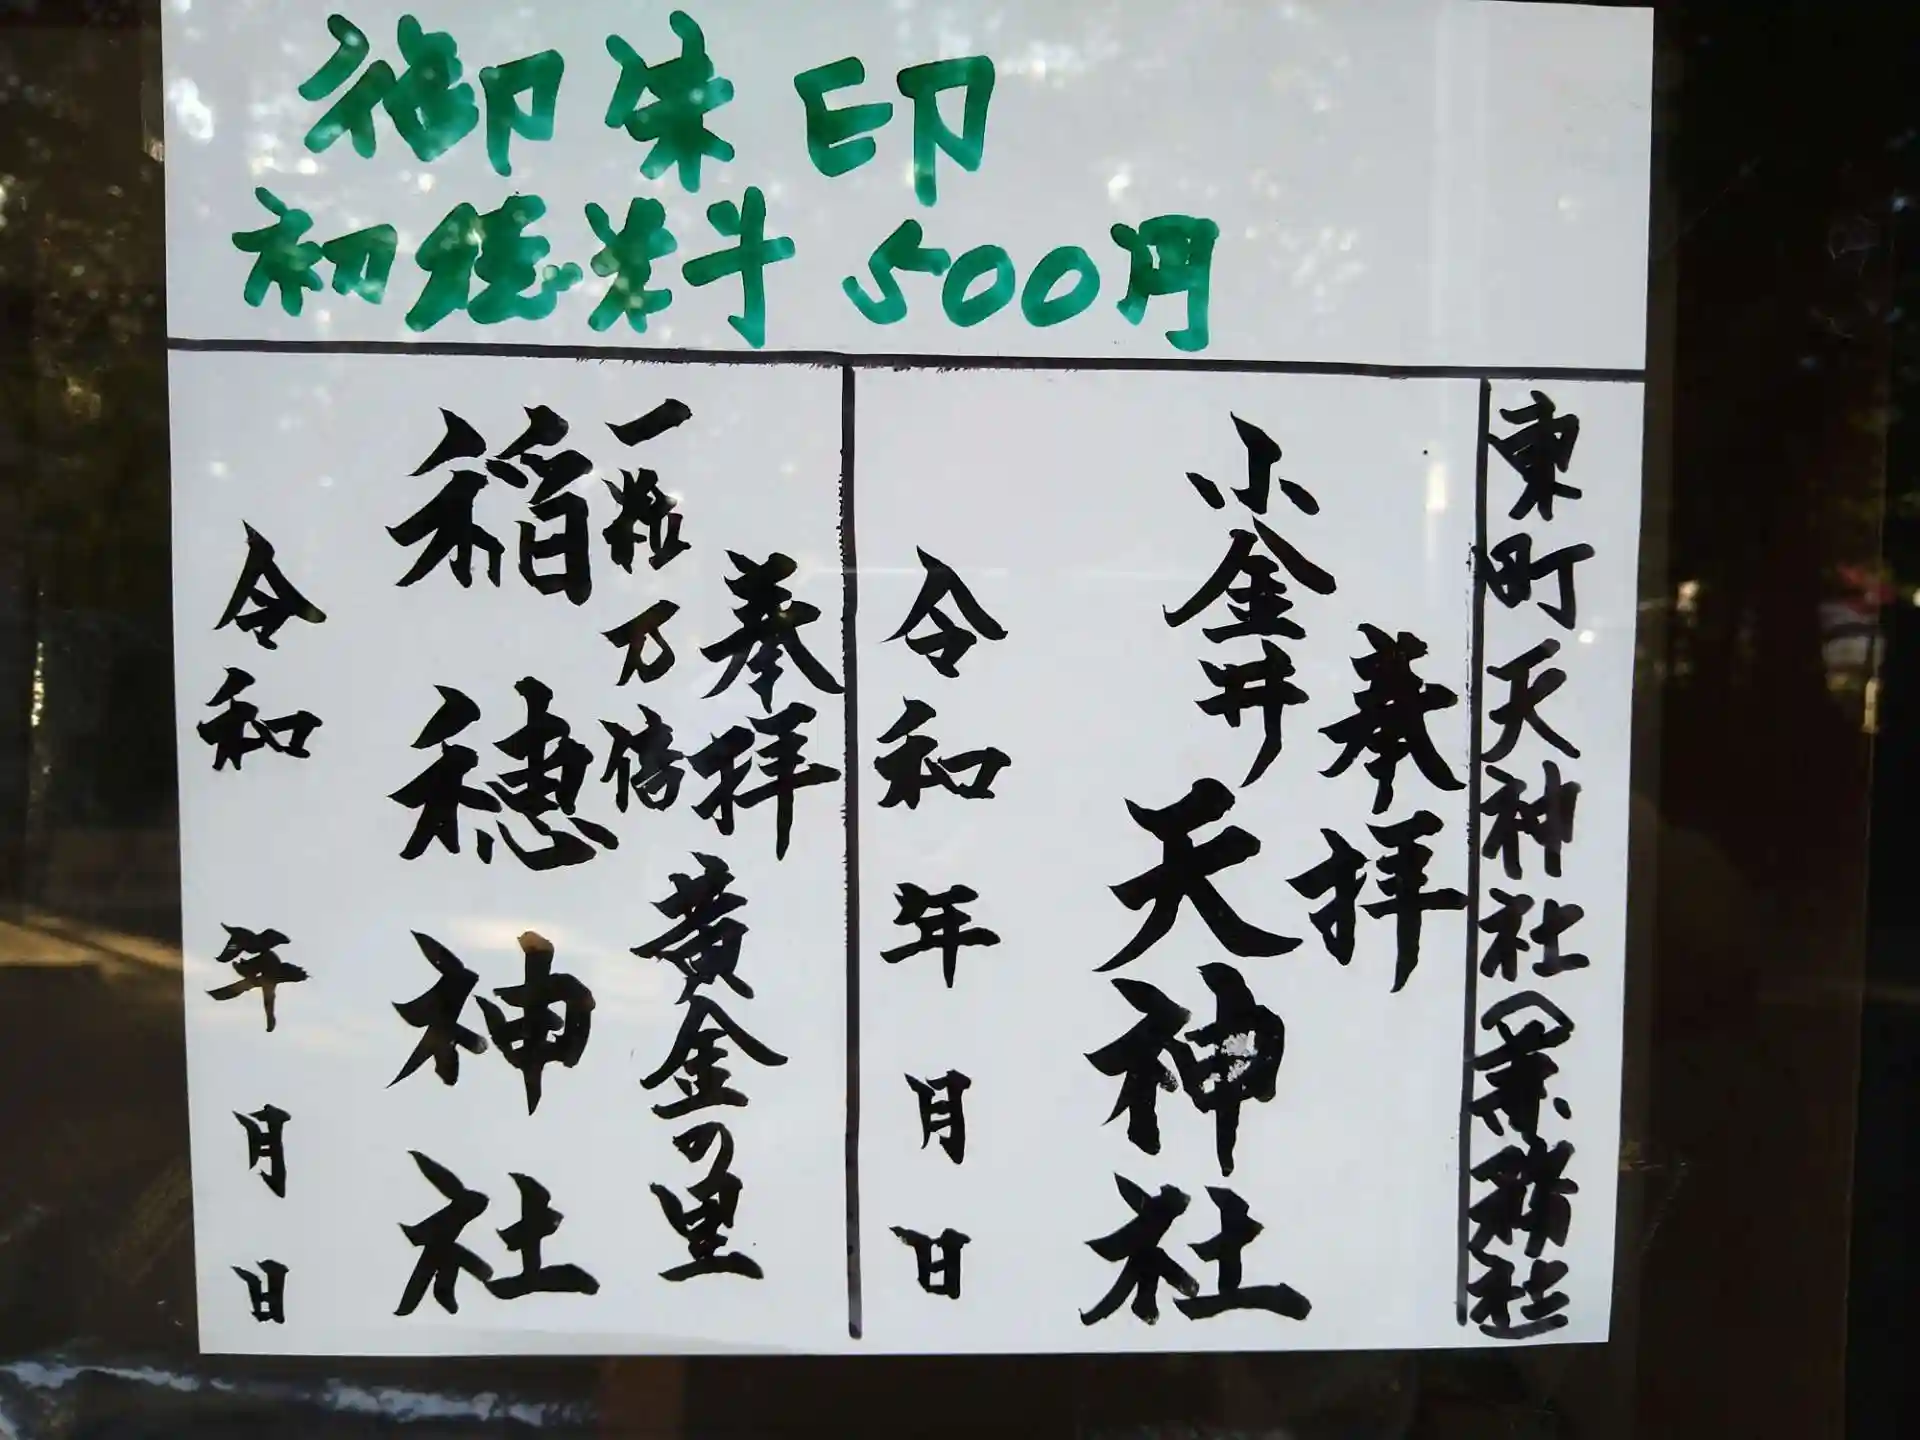 御朱印
初穂料 500円
東町天神社(業務社)
奉拝
小金井天神社
令和 年 月 日
奉拝 黄金の里
一粒万倍
稲穂神社
令和 年 月 日